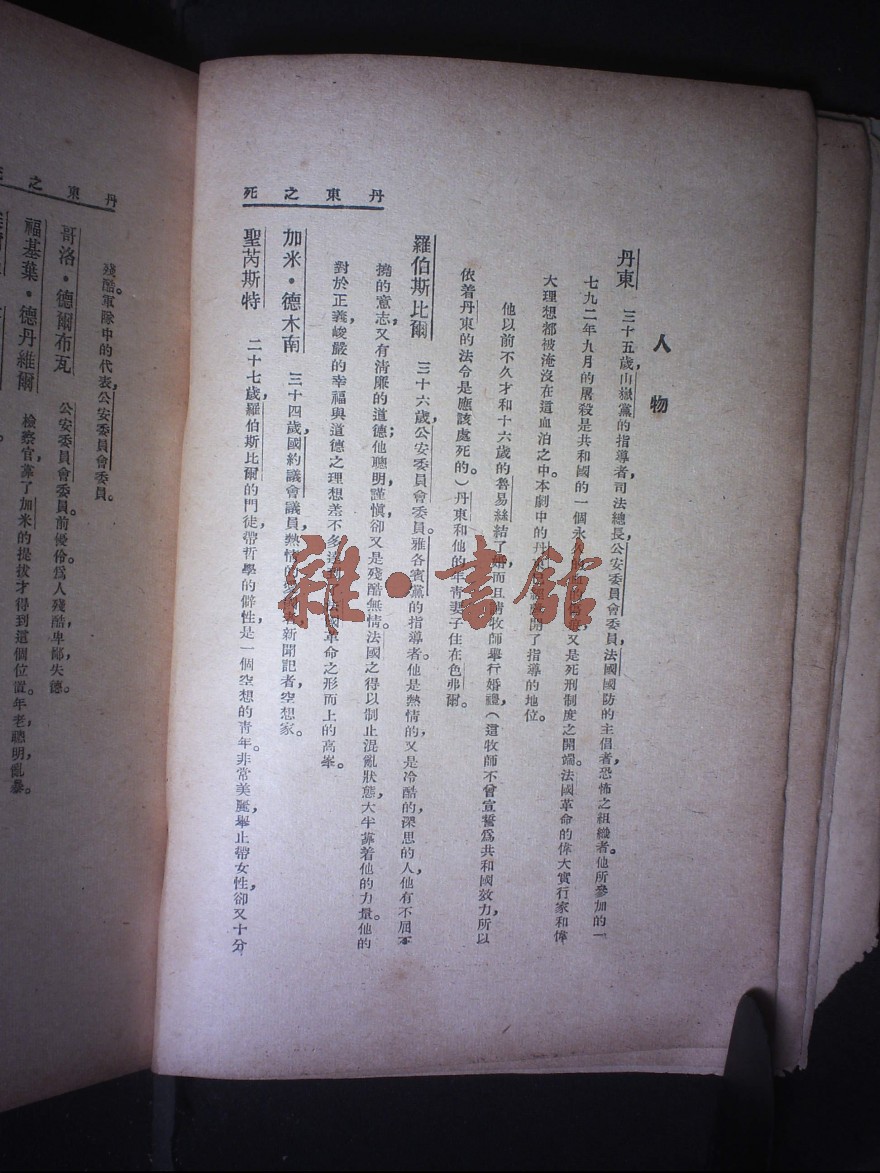 丹東之死
人物
丹東　三十五歲，山嶽黨的指導者，司法總長，公安委員會委員，法國國防的主倡者，恐怖之組織者。他所參加的一
七九二年九月的屠殺是共和國的一個永又是死刑制度之開端。法國革命的偉大實行家和偉
大理想都被淹沒在這血泊之中。本劇中的丹東開了指導的地位。
他以前不久才和十六歲的魯易絲結了婚，而且請牧師舉行婚禮，（這牧師不曾宣誓爲共和國效力，所以
依着丹東的法令是應該處死的。）丹東和他的年青妻子住在色弗爾。
羅伯斯比爾　三十六歲，公安委員會委員。雅各賓黨的指導者。他是熱情的，又是冷酷的，深思的人，他有不屈不
撓的意志，又有清廉的道德；他聰明，謹愼，卻又是殘酷無情。法國之得以制止混亂狀態，大半靠着他的力量。他的
對於正義峻嚴的幸福與道德之理想差不多革命之形而上的高峯。
加米・德木南　三十四歲，國約議會議員，熱情的新聞記者，空想家。
聖芮斯特　二十七歲，羅伯斯比爾的門徒，帶哲學的僻性，是一個空想的靑年。非常美麗，舉止帶女性，卻又十分
丹東之
殘酷。軍隊中的代表，公安委員會委員。
哥洛・德爾布瓦　公安委員會委員。前優伶。爲人殘酷，卑鄙，失德。
福基葉・德丹維爾　檢察官，靠了加米的提拔才得到這個位置。年老，聰明，亂暴。